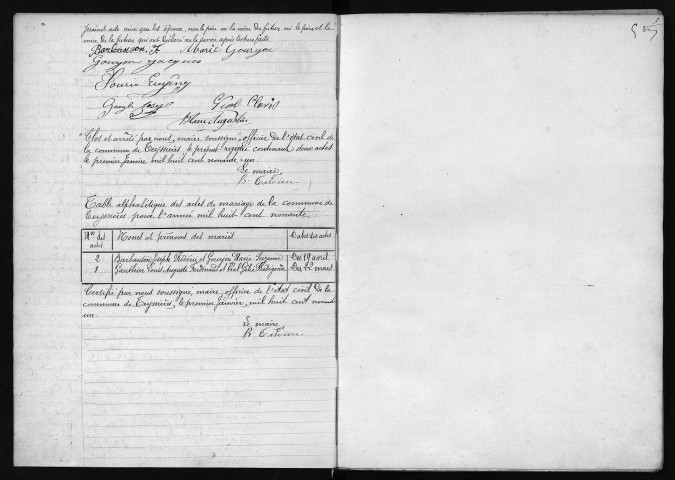 présent acte ainsi que les époux, non le père ni la mère du futur ni le père et la
mère de la future qui ont déclaré ne le savoir après lecture faite
Barbanson, F Marie Gourjon
Gourjon Jacques
Eugène
Joseph Vial Clovis
Blanc Augustin
Clos et arrêté par nous, maire soussigné, officier de l'état civil de
la commune de Teyssières, le présent registre contenant deux actes
le premier janvier mil huit cent nonante-un
Le maire
B. Tardieu
Table alphabétique des actes de mariage de la commune de
Teyssières pour l'année mil huit cent nonante
Nos des actes Noms et prénoms des mariés Dates des actes
2 Barbanson Joseph Frédéric et Gourjon Marie Suzanne Du 19 avril
1 Gauthier Louis Auguste Ferdinand et Vial Du 22 mars
Certifié par nous soussigné, maire, officier de l'état civil de la
commune de Teyssières, le premier janvier, mil huit cent nonante
un
Le maire
B. Tardieu